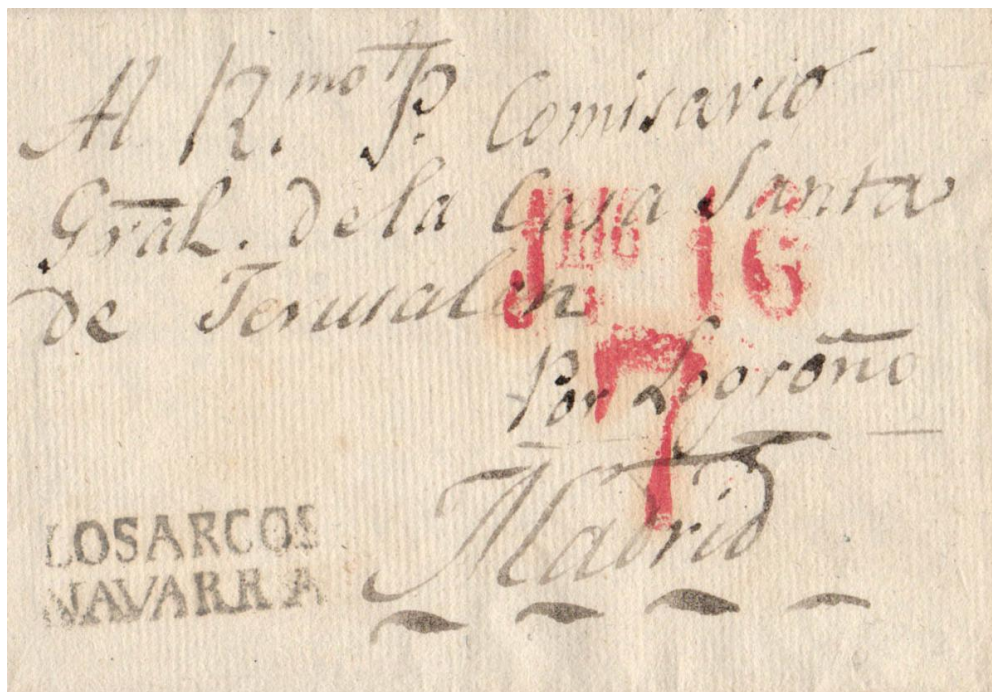 Al R.mo P. Comisario
Gral. de la Casa Santa
de Jerusalen
Jnio 16
7
Por Logroño
Madrid
LOS ARCOS
NAVARRA